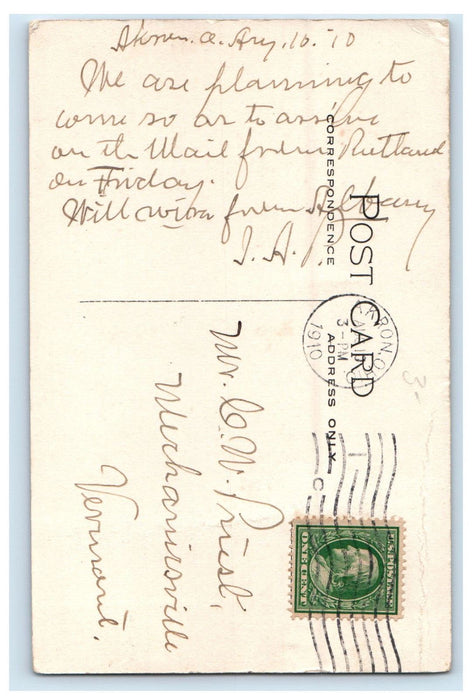 Akron. O. Aug. 10. '10
We are planning to
come so as to arrive
on the Mail from Rutland
on Friday.
Will wire from Albany
J. A. P.
POST CARD
CORRESPONDENCE
ADDRESS ONLY
AKRON, O.
3-PM
1910
Mr. C. W. Priest,
Mechanicsville
Vermont.
U.S. POSTAGE
ONE CENT